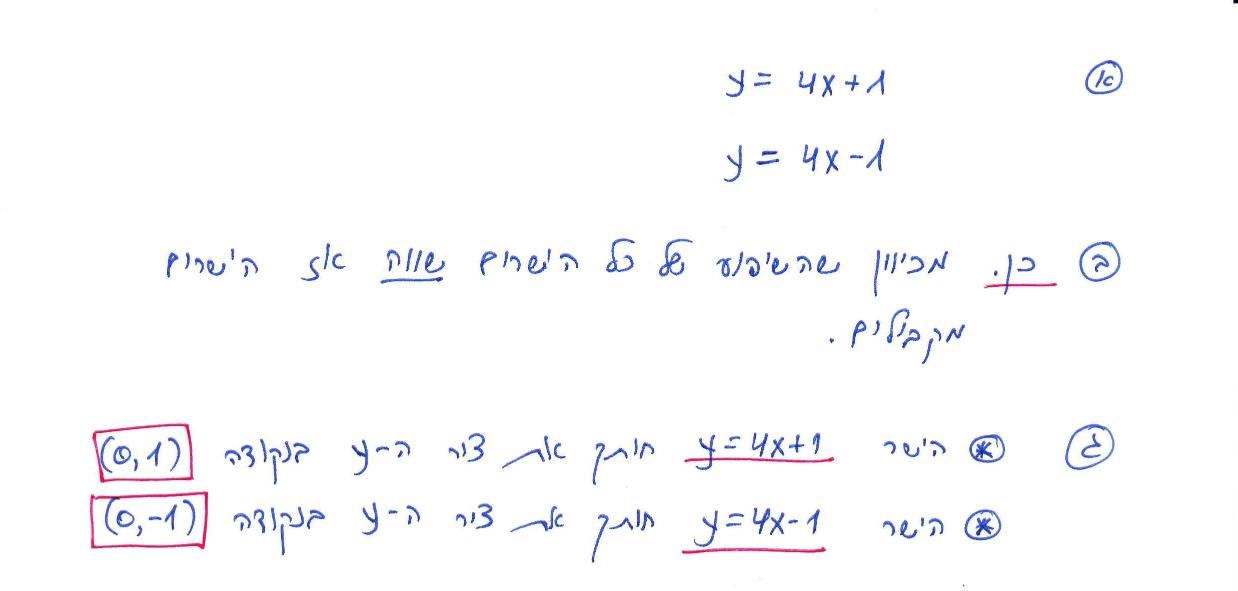 א y = 4x+1
y = 4x-1
ב כן. מכיוון שהשיפוע של כל הישרים שווה אז הישרים
מקבילים.
ג * הישר y=4x+1 חותך את ציר ה-y בנקודה (0,1)
* הישר y=4x-1 חותך את ציר ה-y בנקודה (0,-1)